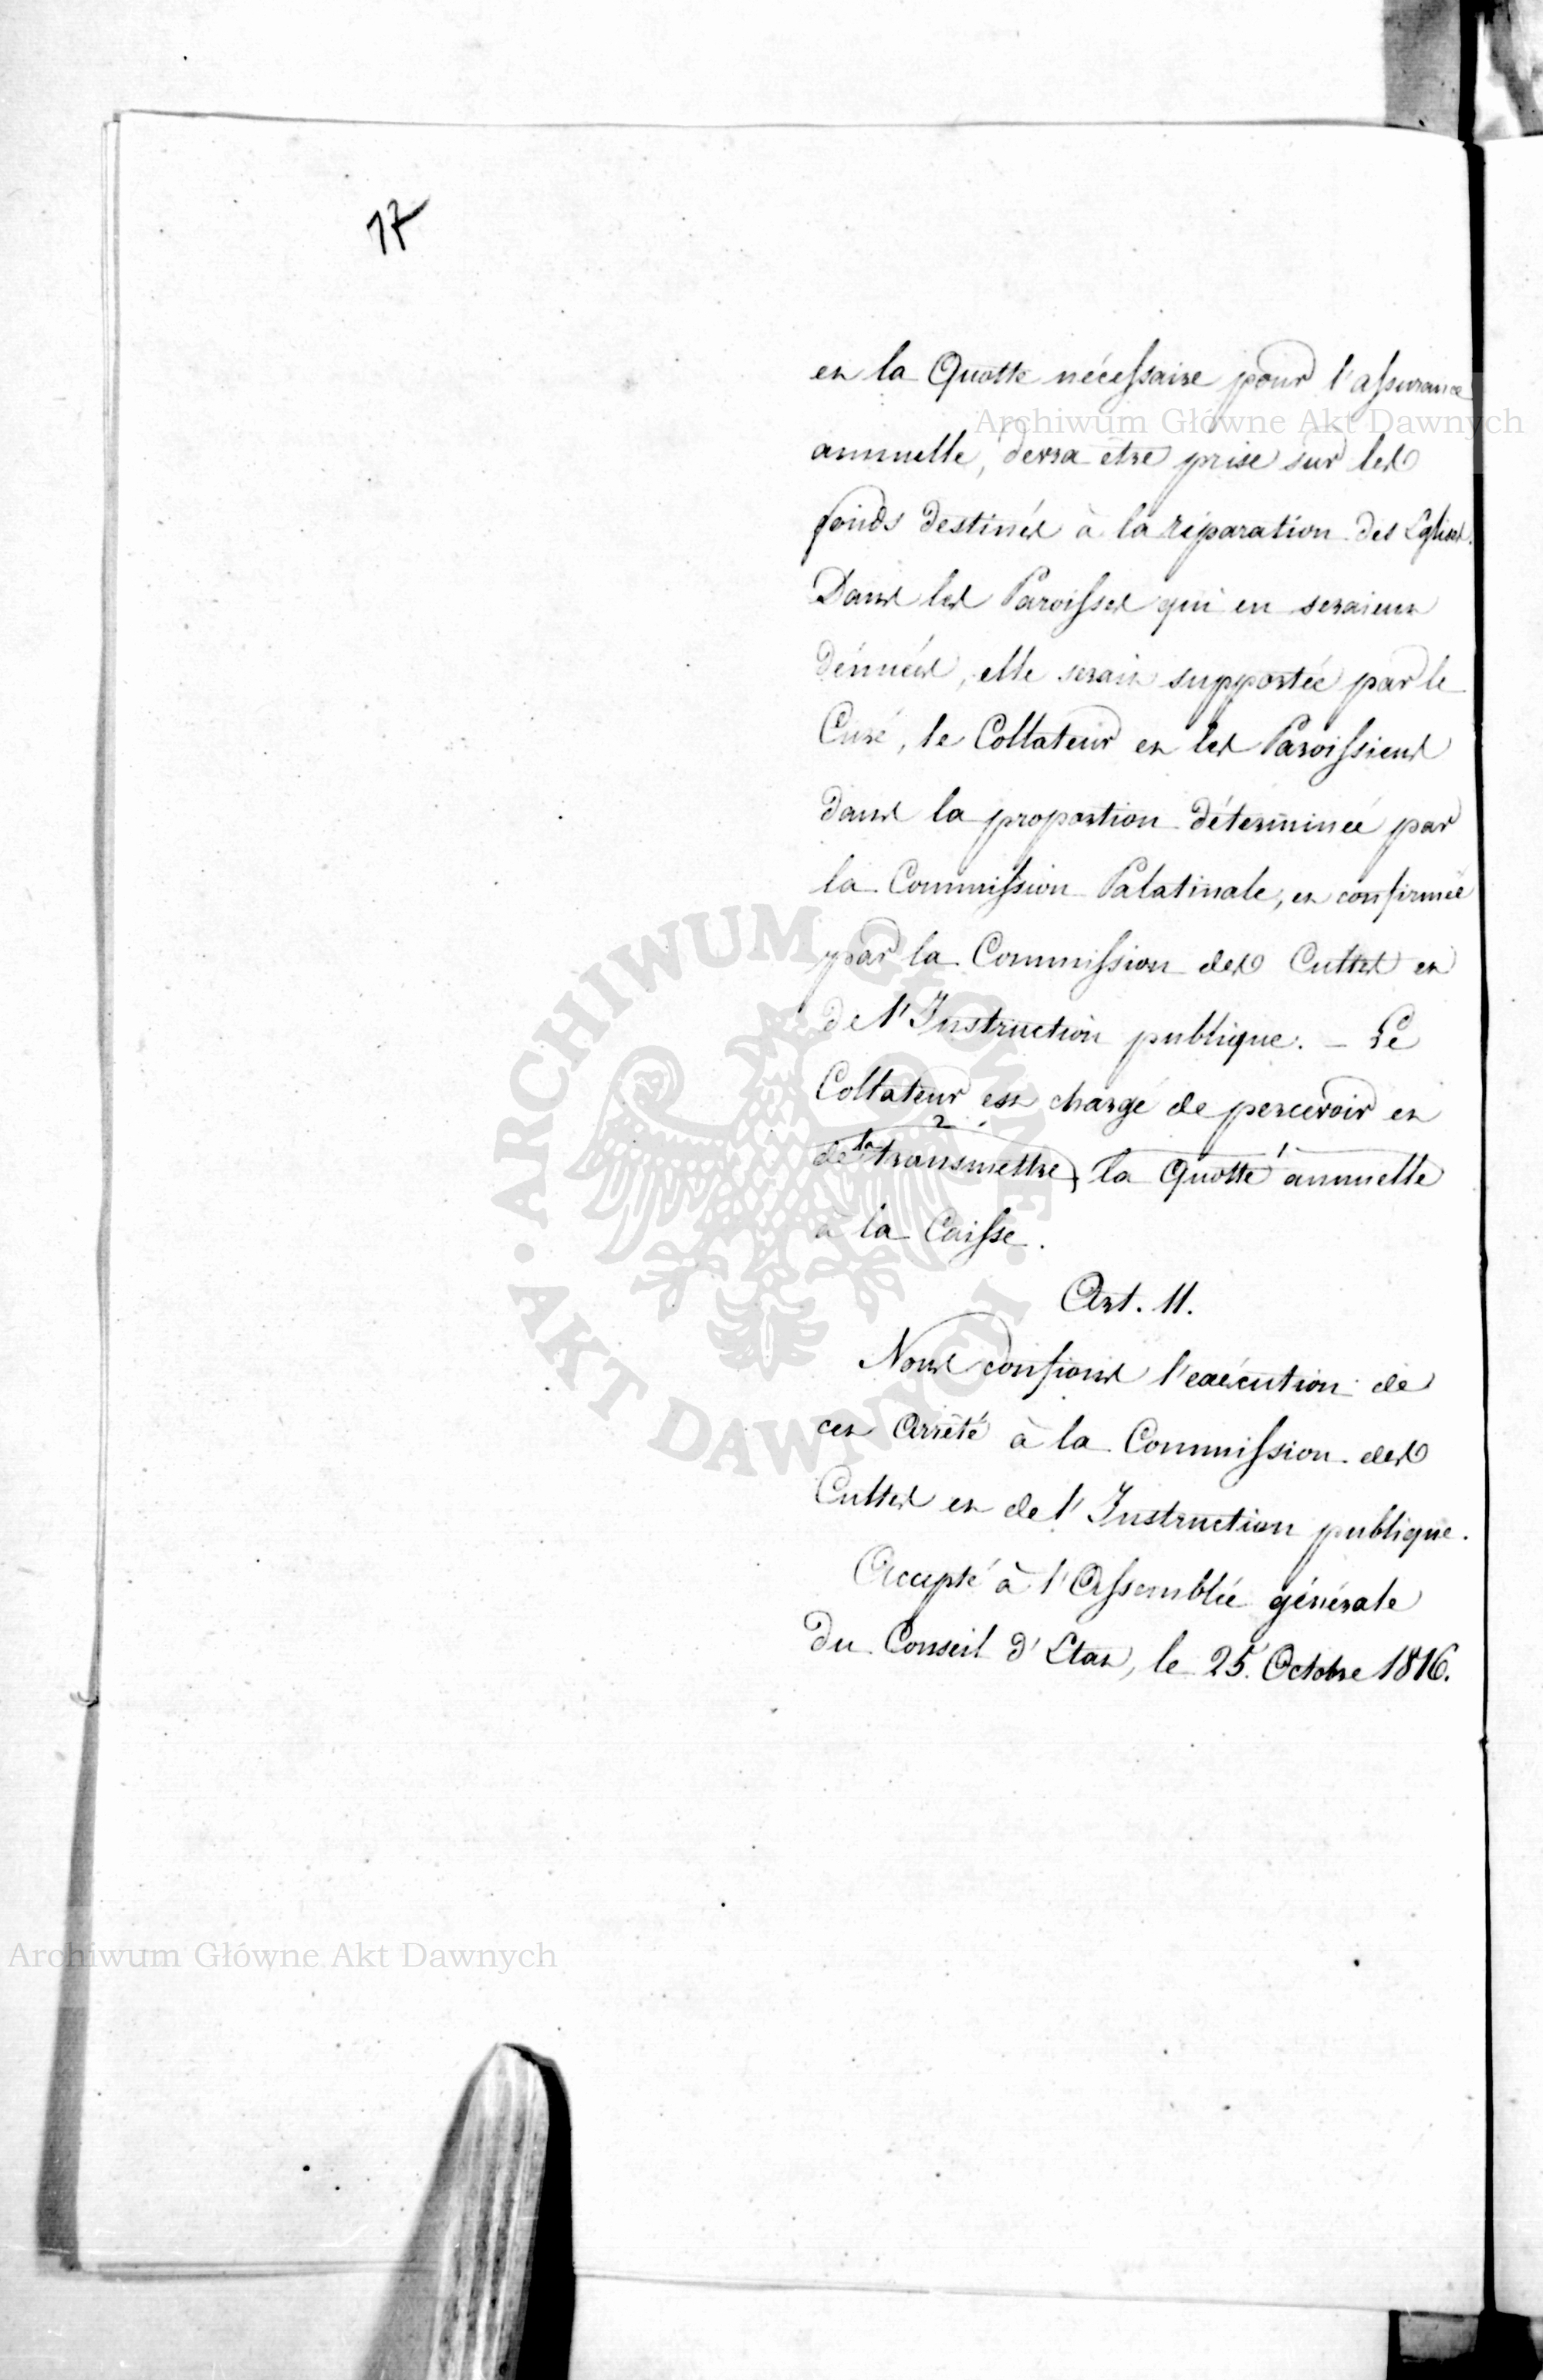 17
et la Quotte nécessaire pour l'assurance
Archiwum Główne Akt Dawnych
annuelle, devra être prise sur les
fonds destinés à la réparation des Eglises.
Dans les Paroisses qui en seraient
dénuées, elle serait supportée par le
Curé, le Collateur et les Paroissiens
dans la proportion déterminée par
la Commission Palatinale, et confirmée
par la Commission des Cultes et
de l'Instruction publique. – Le
Collateur est chargé de percevoir et
2.
de la transmettre, la Quotte 1 annuelle
à la Caisse.
Art. 11.
Nous confions l'exécution de
cet Arrêté à la Commission des
Cultes et de l'Instruction publique.
Accepté à l'Assemblée générale
du Conseil d'Etat, le 25. Octobre 1816.
ARCHIWUM GŁÓWNE · AKT DAWNYCH ·
Archiwum Główne Akt Dawnych